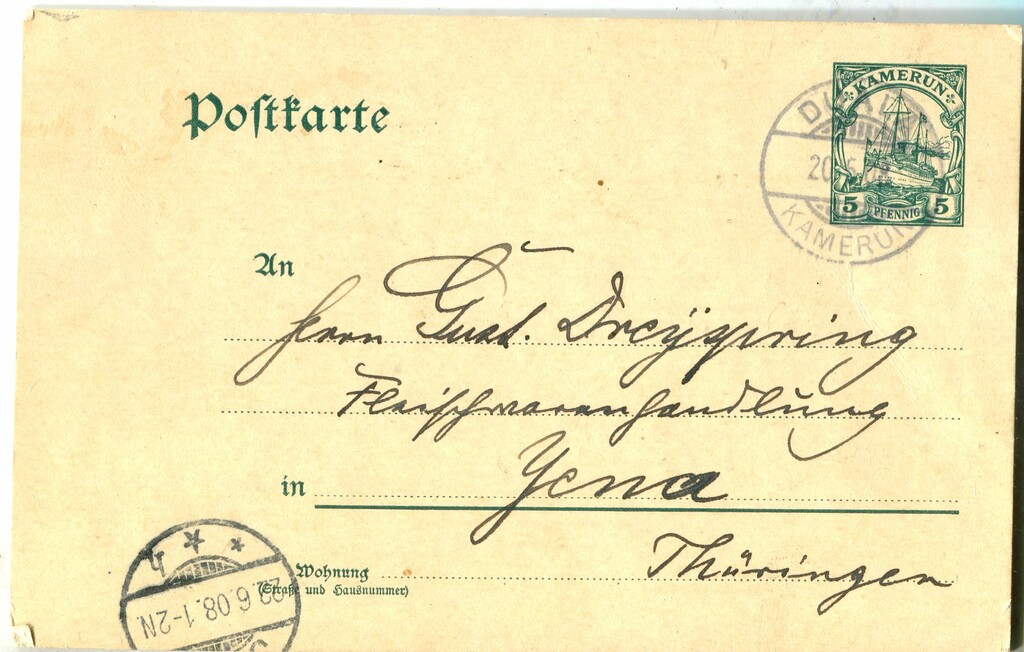 Postkarte
KAMERUN
5 PFENNIG 5
DUALA
20 5 08
KAMERUN
An
Herrn Gust. Dreÿspring
Fleischwarenhandlung
in Jena
Thüringen
Wohnung
(Straße und Hausnummer)
22 6.08.1-2N